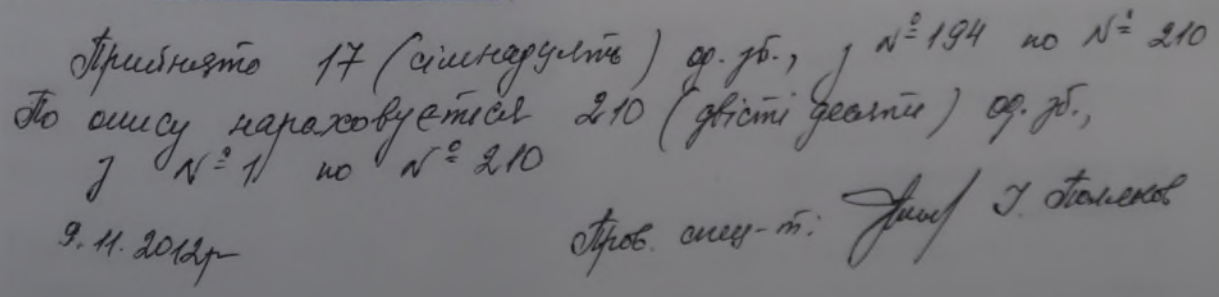 Прийнято 17 (сімнадцять) од. зб., з №194 по № 210
По опису нараховується 210 (двісті десять) од. зб.,
з №1 по № 210
9.11.2012р
Пров. спец-т: І. Поляков